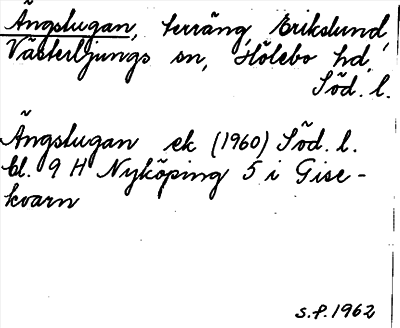 Ängslugan, terräng, Erikslund,
Västerljungs sn, Hölebo hd,
Söd. l.
Ängslugan ek (1960) Söd. l.
bl. 9 H Nyköping 5 i Gise-
kvarn
s.f. 1962